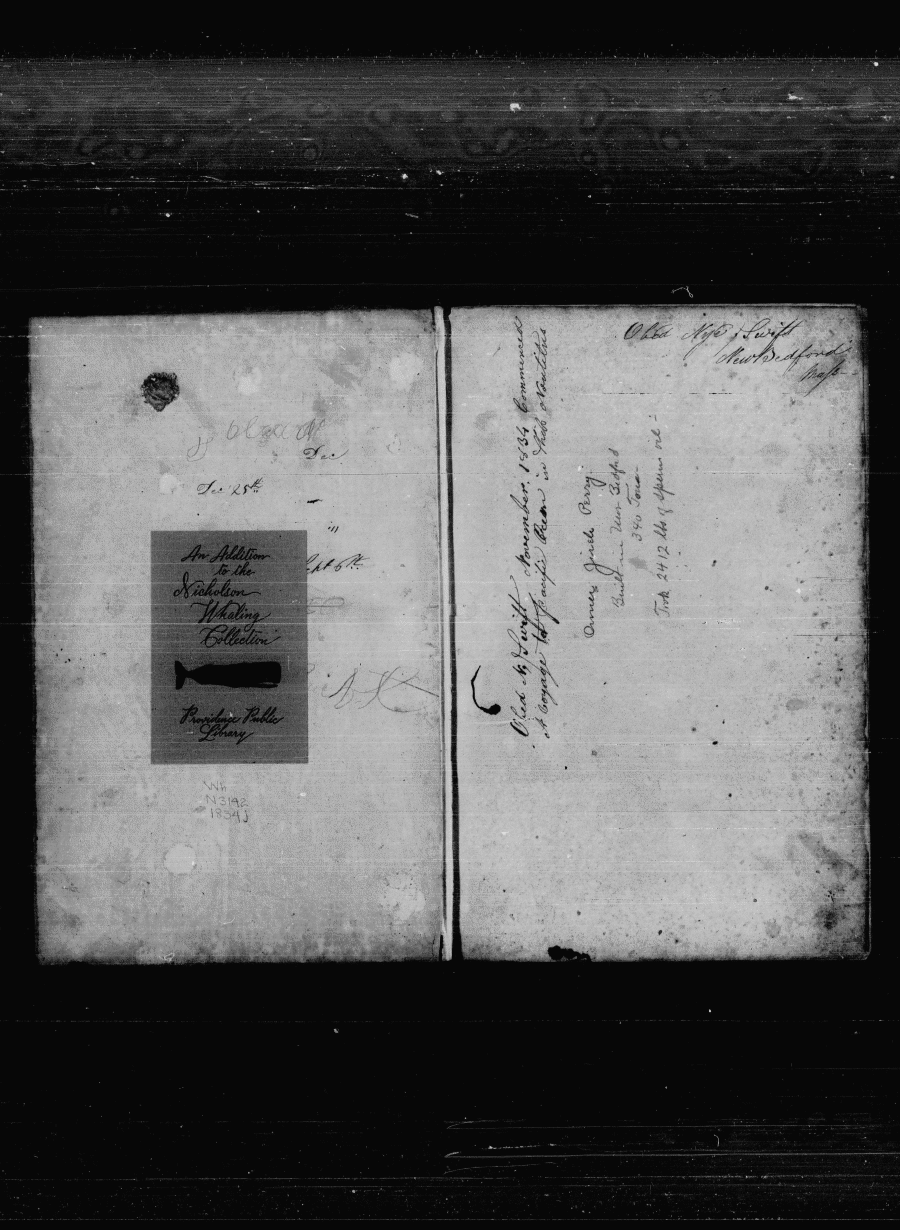 Dec
Dec 25th
An Addition
to the
Nicholson
Whaling
Collection
Providence Public
Library
Wh
N3142
1834j
Obed Nye Swift
New Bedford
Mass
Obed N. Swift November. 1834 Commenced
A Voyage to Pacific Ocean in Ship Nautilus
Owner Jireh Perry
Built in New Bedford
340 Tons
Took 2412 bbls of sperm oil